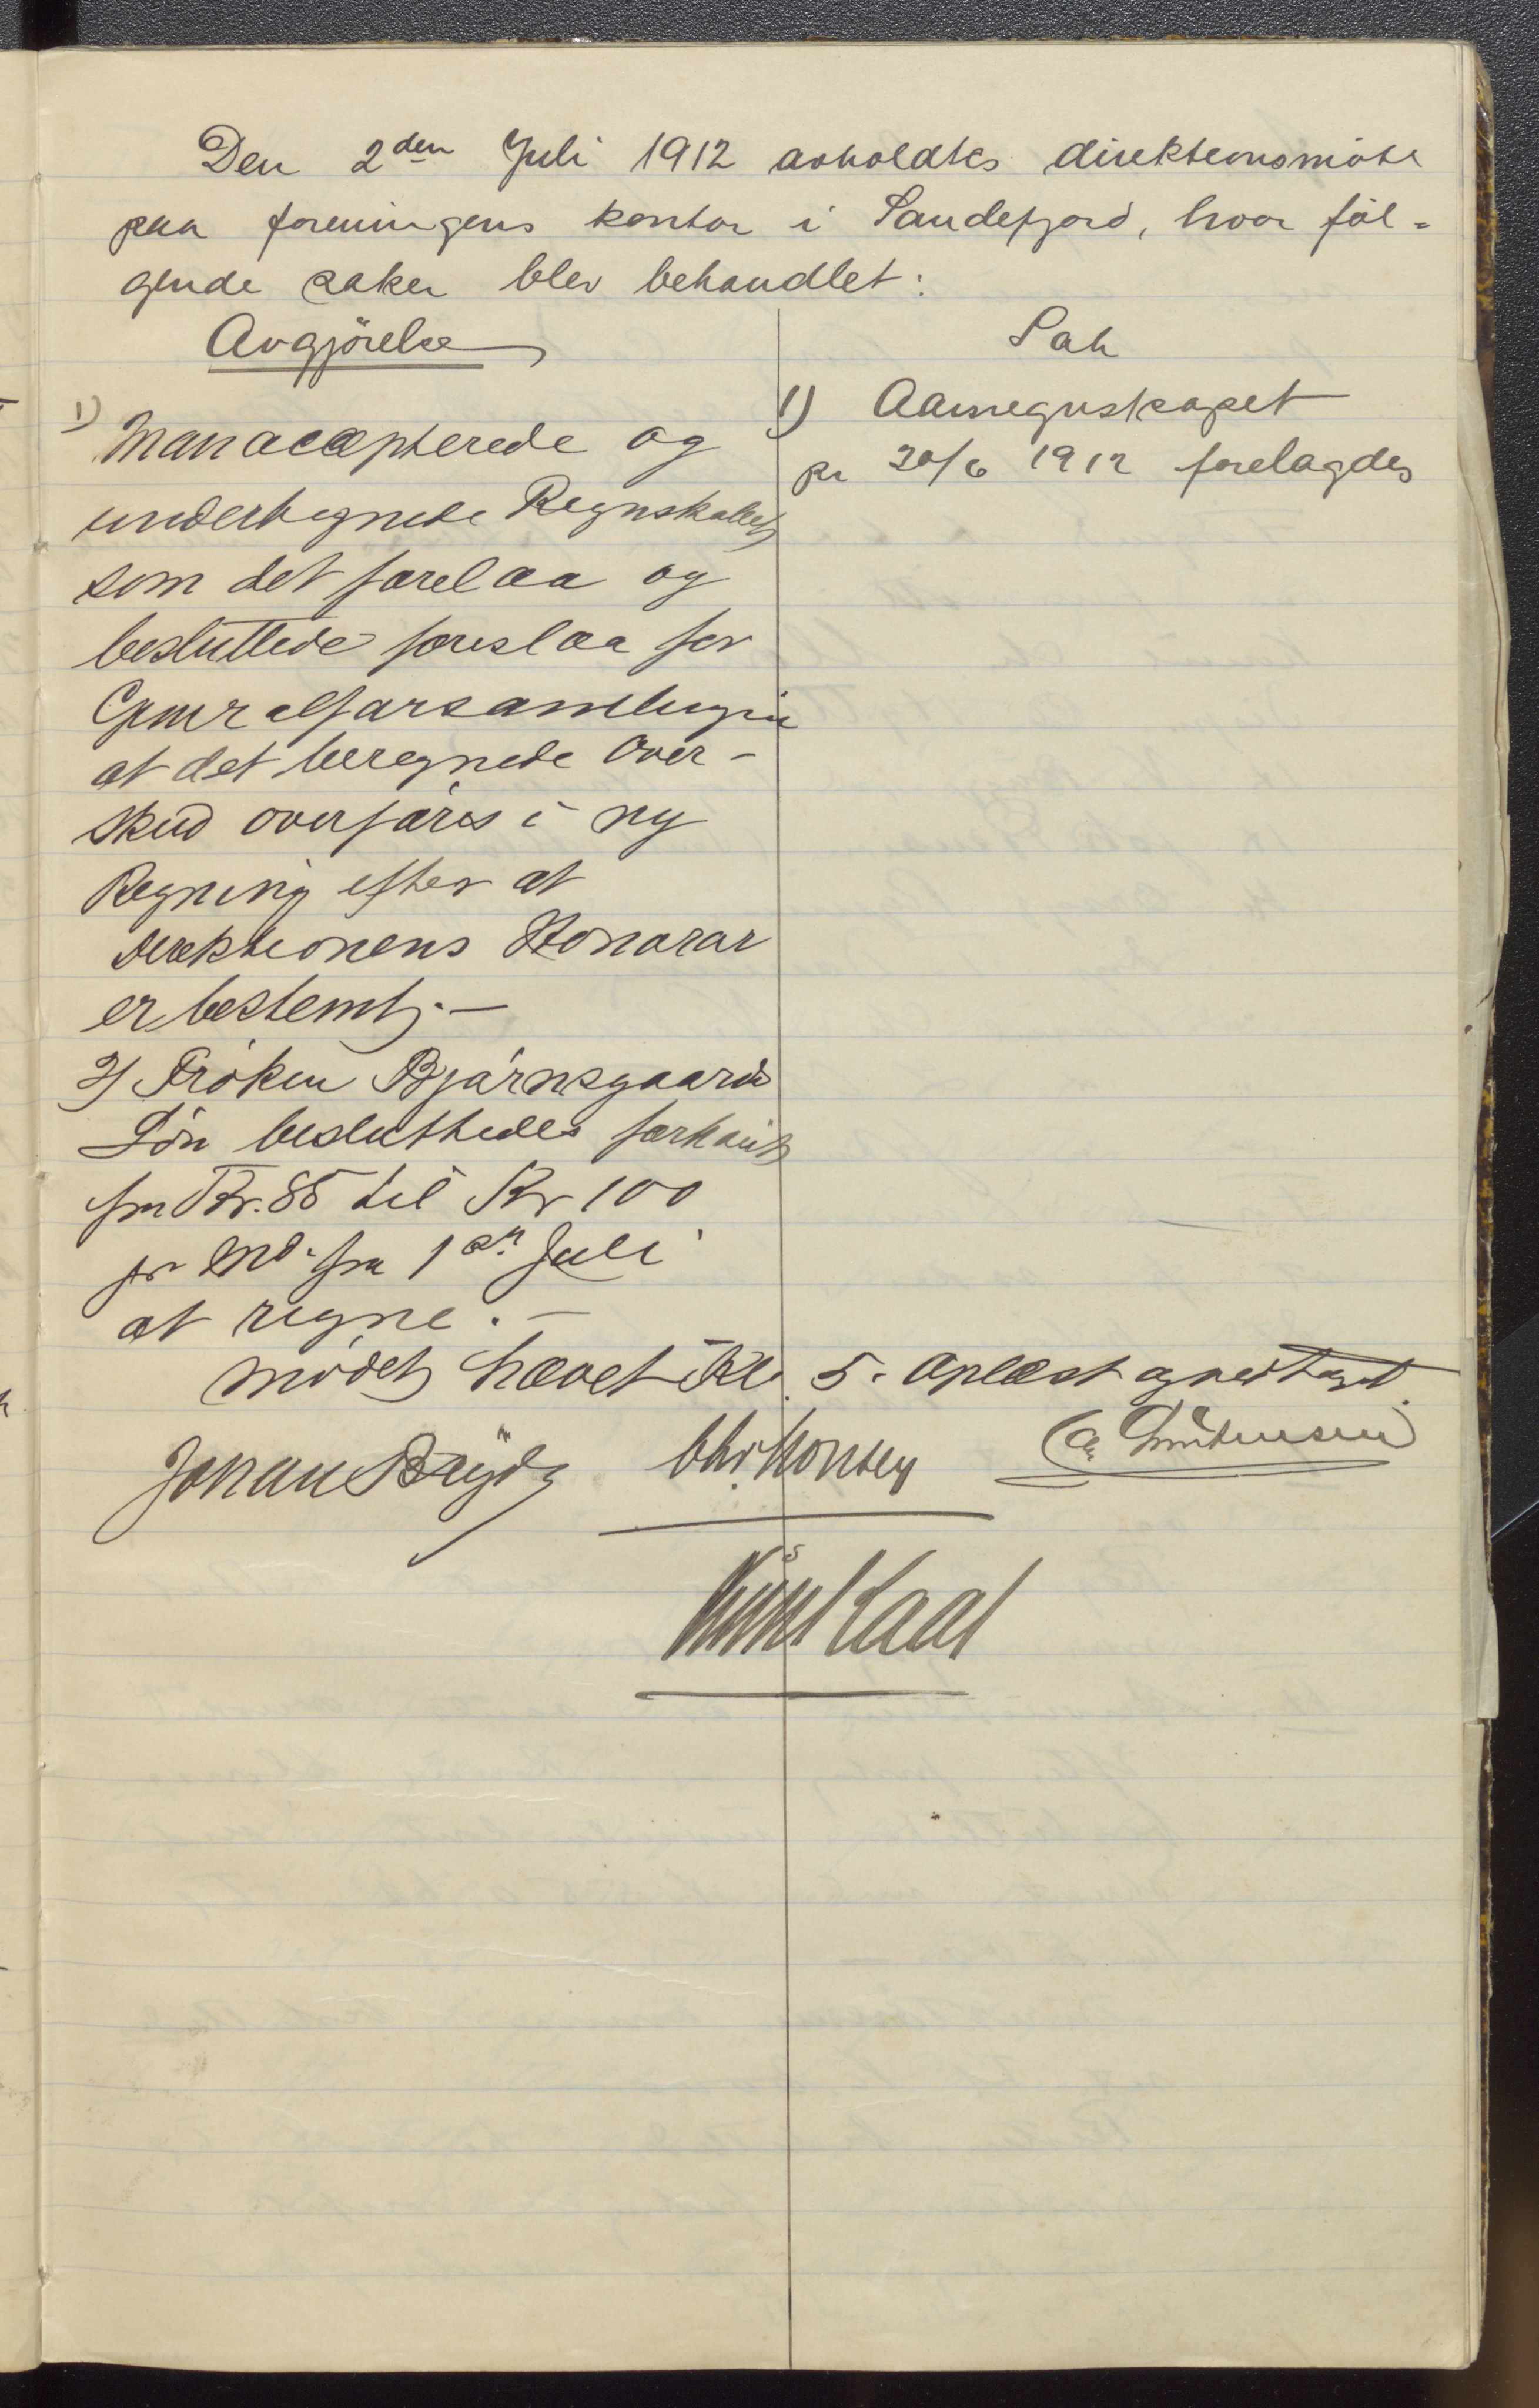 Den 2den Juli 1912 avholdtes direktionsmöte
paa foreningens kontor i Sandefjord, hvor föl-
gende saker blev behandlet:
Avgjörelse
1) Man accepterede og
undertegnede Regnskabet
som det forelaa og
besluttede foreslaa for
Generalforsamlingen
at det beregnede Over-
skud overföres i ny
Regning efter at
Direktionens Honorar
er bestemt.-
2) Fröken Bjørnsgaards
Lön besluttedes forhöiet
fra Kr. 85 til Kr 100
pr Md. fra 1ste Juli
at regne.-
Sak
1) Aarsregnskapet
pr 30/6 1912 forelagdes
Mödet hævet Kl. 5. Oplæst og vedtaget.
Johan Bryde
Chr. Monsen